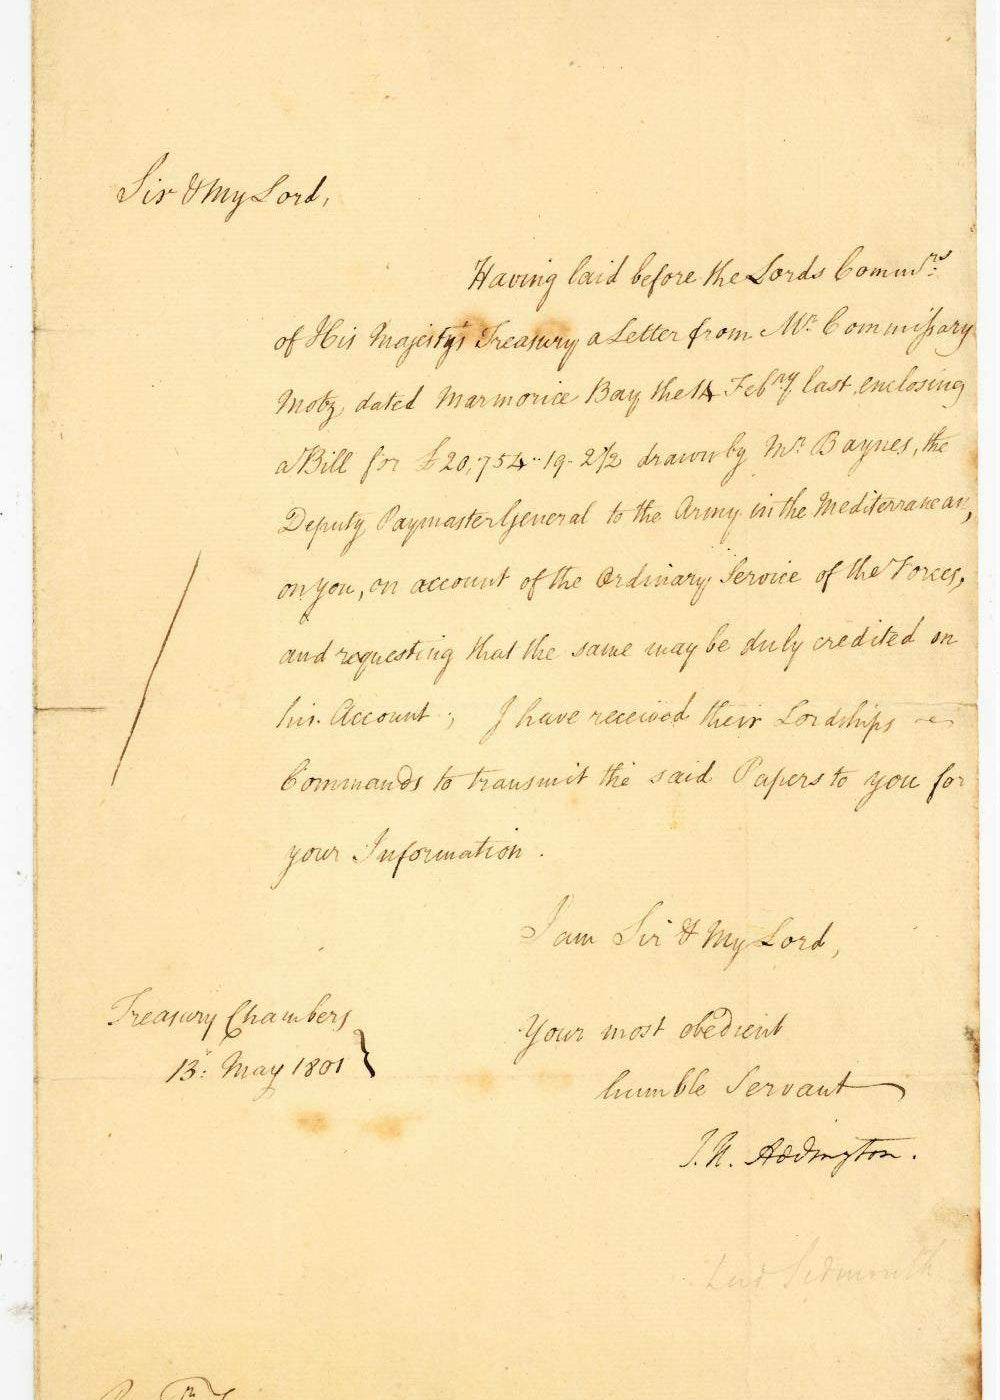 Sir & My Lord,
Having laid before the Lords Comm.rs
of His Majesty's Treasury a Letter from Mr. Commissary
Motz, dated Marmorice Bay the 14 Feb.ry last, enclosing
a Bill for £20,754..19..2½ drawn by Mr. Baynes, the
Deputy Paymaster General to the Army in the Mediterranean,
on you, on account of the Ordinary Service of the Forces,
and requesting that the same may be duly credited on
his Account; I have received their Lordships
Commands to transmit the said Papers to you for
your Information.
I am Sir & My Lord,
Treasury Chambers
13: May 1801
Your most obedient
humble Servant
Addington.
Lord Sidmouth